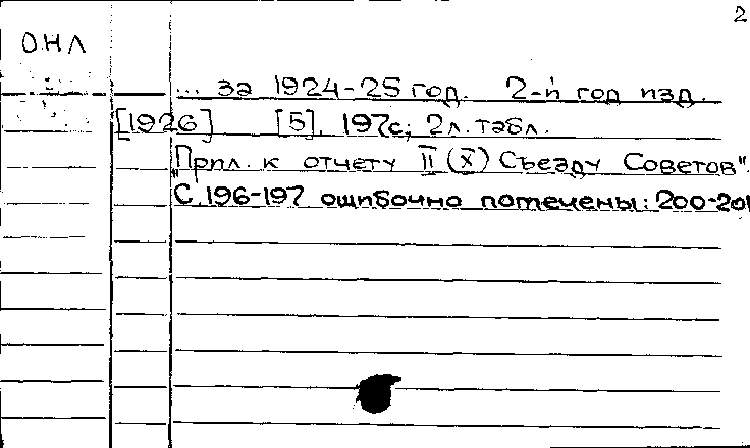 2
ОНЛ
... за 1924-25 год. 2-й год изд.
[1926] [5], 197с; 2л. табл.
"Прил. к отчету II (X) Съезду Советов".
С. 196-197 ошибочно помечены: 200-201